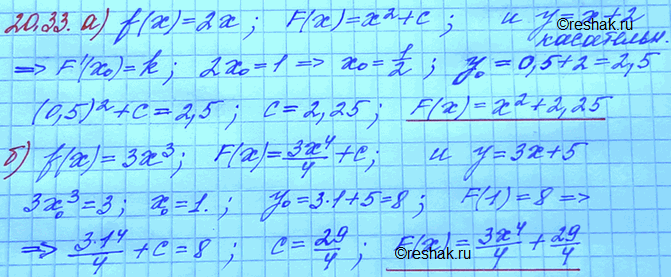 20.33. а) f(x)=2x; F(x)=x²+c; и y=x+2
©reshak.ru
касательн.
=> F'(x₀)=k; 2x₀=1 => x₀=1/2; y₀=0,5+2=2,5
(0,5)²+c=2,5; c=2,25; F(x)=x²+2,25
б) f(x)=3x³; F(x)=3x⁴/4+c; и y=3x+5
3x₀³=3; x₀=1. ; y₀=3·1+5=8; F(1)=8 =>
=> 3·1⁴/4+c=8; c=29/4; F(x)=3x⁴/4+29/4
©reshak.ru